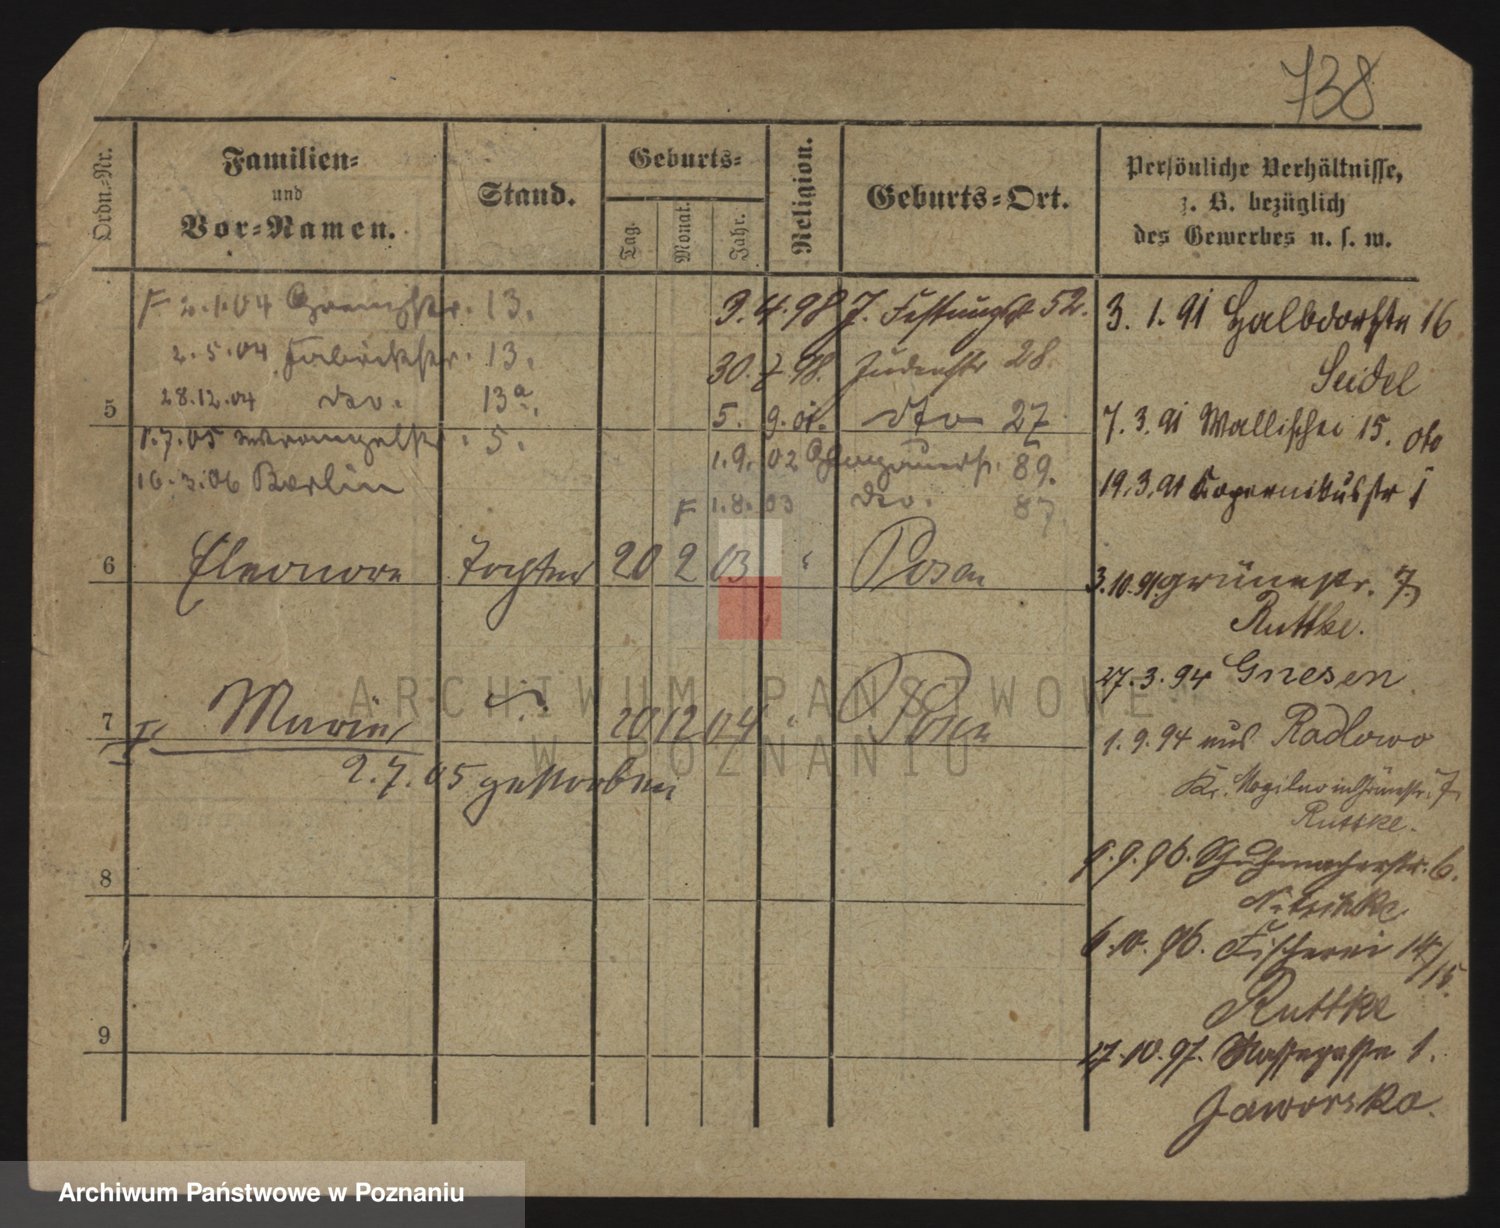 738
Ordn.-Nr.
Familien-
und
Vor-Namen.
Stand.
Geburts-
Tag.
Monat.
Jahr.
Religion.
Geburts-Ort.
Persönliche Verhältnisse,
z. B. bezüglich
des Gewerbes u. s. w.
F 2.1.04 13.
2.5.04 Fabrikstr. 13.
28.12.04 dto. 13a.
1.7.05 Wrangelstr. 5.
16.3.06 Berlin
3.4.98 J. Festungsstr 52.
30.7.98. Judenstr 28.
5. 9. 01. dto 27
1.9.02 89.
F 1.8.03 dto. 87
5
6 Eleonore Tochter 20 2 03 " Posen
7 Marie 20 12 04 " Posen
2.7.05 gestorben
8
9
3. 1. 91 Halbdorfstr 16
Seidel
7. 3. 91 Wallischei 15.
19.3.91 Kopernikusstr 1
3.10.91. Grünestr. 7.
Ruttke.
27.3.94 Gnesen
1.9.94 aus Radlowo
Kr. Mogilno in Grünestr. 7
Ruttke.
9.9.96. Schuhmacherstr. 6.
Nitschke
6.10.96. Fischerei 14/15.
Ruttke
17.10.97. Wassergasse 1.
Jaworska.
ARCHIWUM PAŃSTWOWE
W POZNANIU
Archiwum Państwowe w Poznaniu